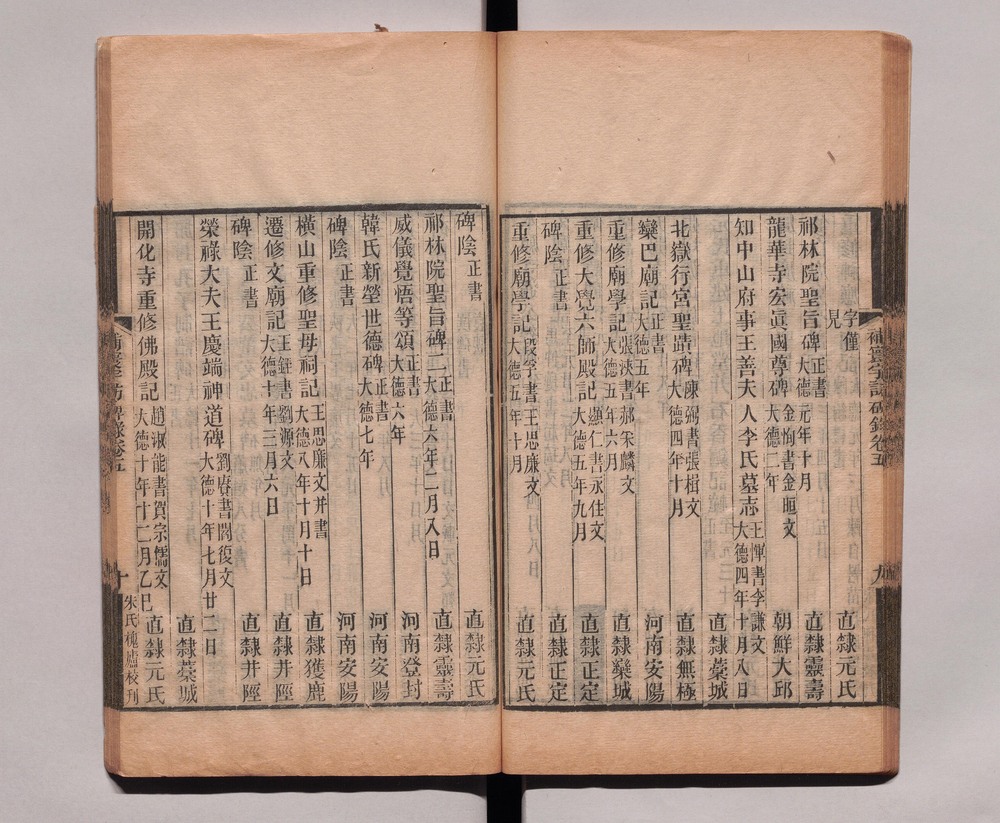 字僅見　直隸元氏
祁林院聖旨碑 正書 大德元年十月　直隸靈壽
龍華寺宏眞國尊碑 金恂書金𣈶文 大德二年　朝鮮大邱
知中山府事王善夫人李氏墓志 王惲書李謙文 大德四年十月八日
直隸藁城
北嶽行宮聖蹟碑 陳弼書張楫文 大德四年十月　直隸無極
欒巴廟記 正書 大德五年　河南安陽
重修廟學記 張泱書郝宋麟文 大德五年六月　直隸欒城
重修大覺六師殿記 顯仁書永住文 大德五年九月　直隸正定
碑陰 正書　直隸正定
重修廟學記 段孚書王思廉文 大德五年十月　直隸元氏
補寰宇訪碑錄卷五
九
碑陰 正書　直隸元氏
祁林院聖旨碑二 正書 大德六年二月八日　直隸靈壽
威儀覺悟等頌 正書 大德六年　河南登封
韓氏新塋世德碑 正書 大德七年　河南安陽
碑陰 正書　河南安陽
橫山重修聖母祠記 王思廉文并書 大德八年十月十日　直隸獲鹿
遷修文廟記 王鋞書劉源文 大德十年三月六日　直隸井陘
碑陰 正書　直隸井陘
榮祿大夫王慶端神道碑 劉賡書閻復文 大德十年七月廿二日
直隸藁城
開化寺重修佛殿記 趙淑能書賀宗儒文 大德十年十二月乙巳　直隸元氏
補寰宇訪碑錄卷五
十
朱氏槐廬校刊